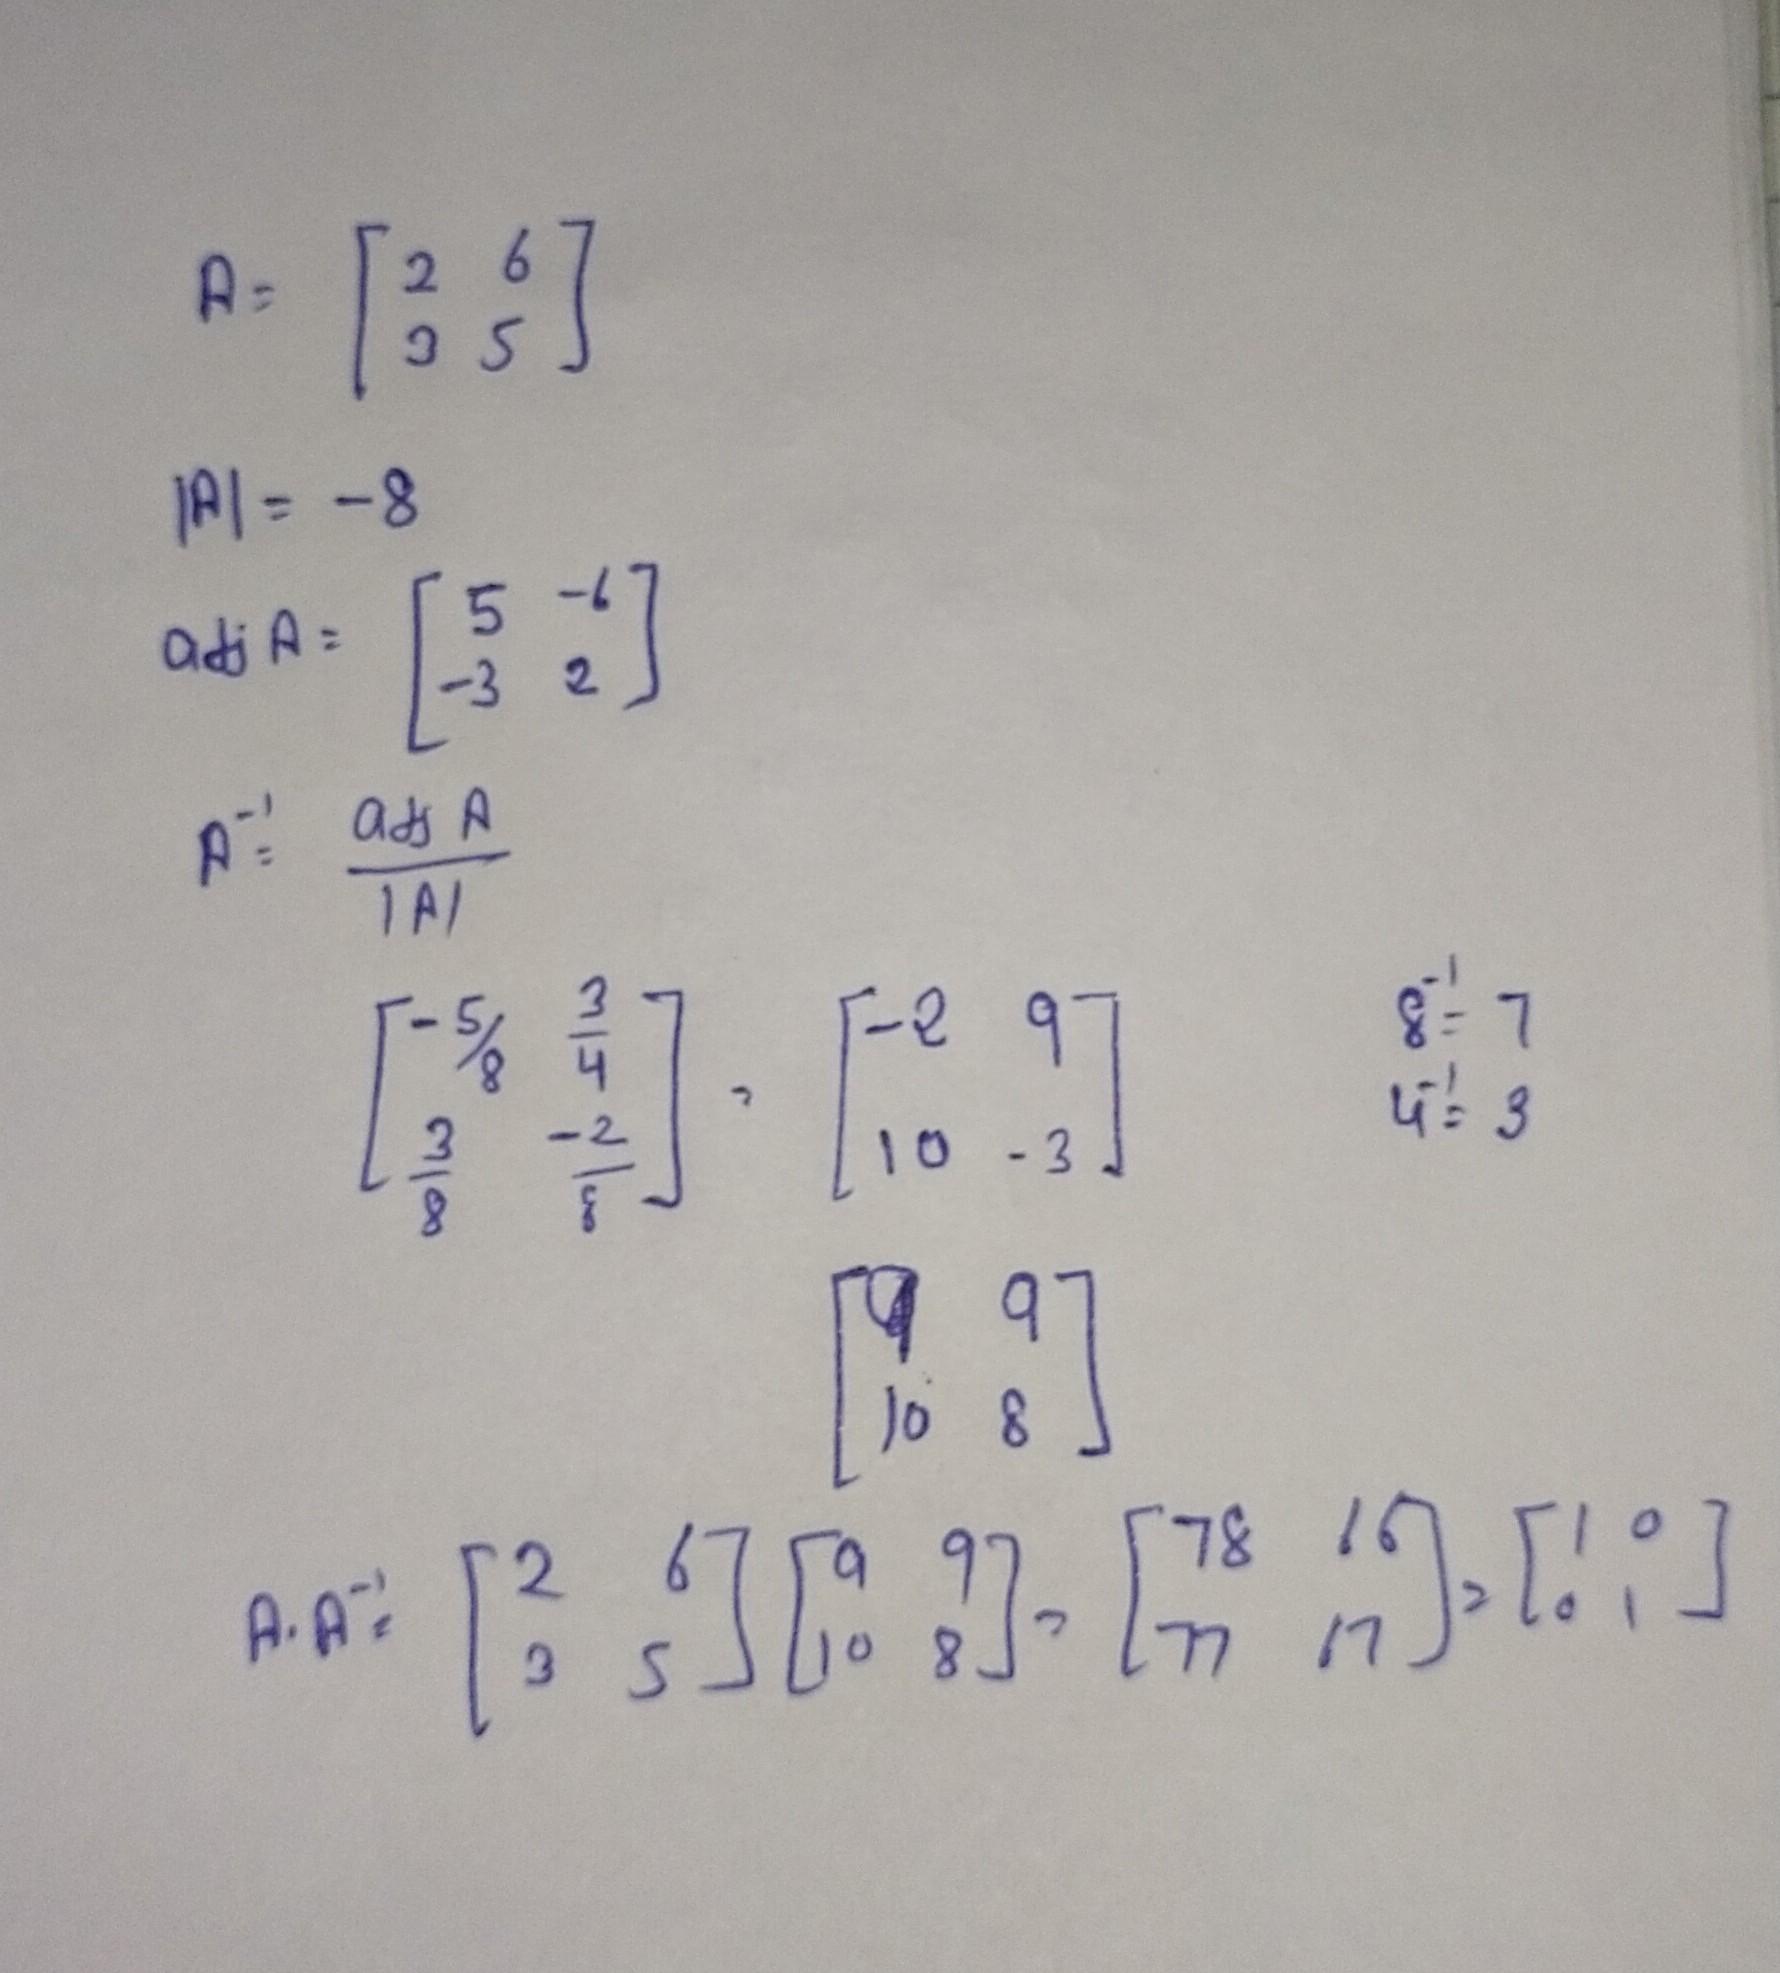 A = [2 6
3 5]
|A| = -8
adj A = [5 -6
-3 2]
A⁻¹ = adj A
|A|
[-5/8 3/4
3/8 -2/8] = [-2 9
10 -3]
8⁻¹ = 7
4⁻¹ = 3
[9 9
10 8]
A.A⁻¹ = [2 6
3 5] [9 9
10 8] = [78
77 17] = [1 0
0 1]